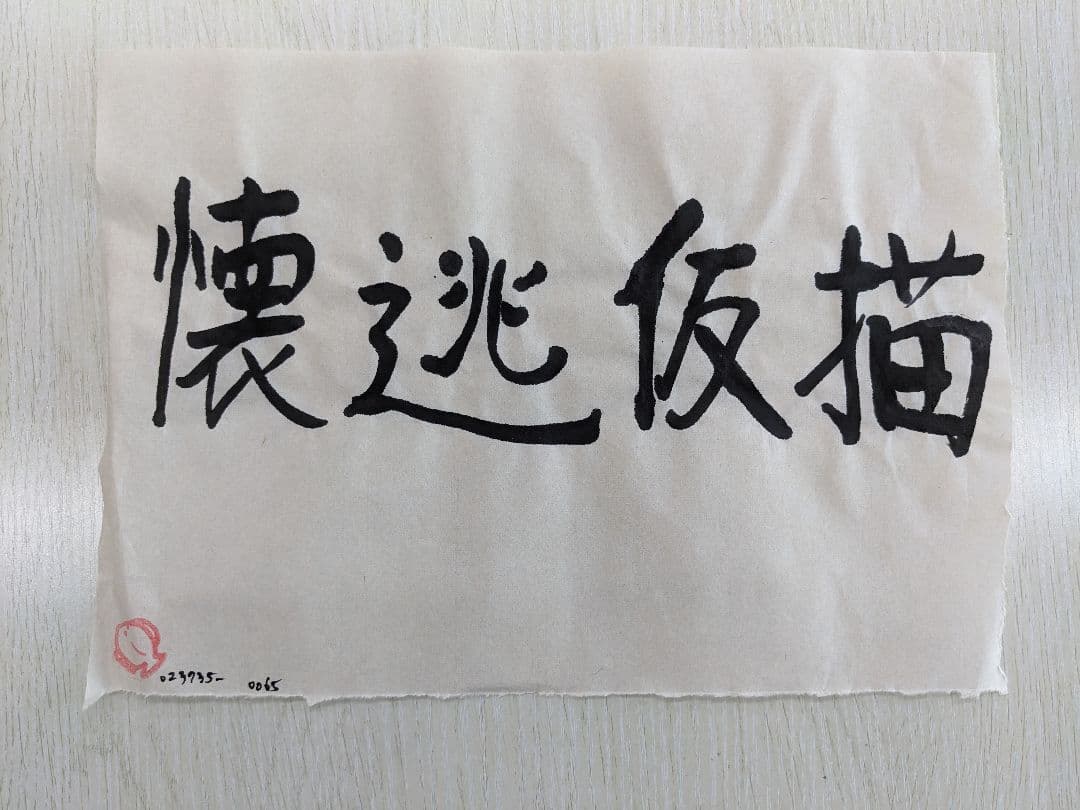 懐逃仮描
023735- 0065